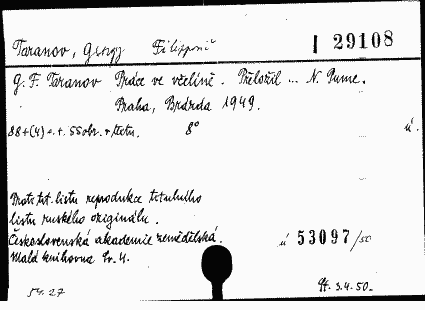 Taranov, Georgij Filippovič
I 29108
G. F. Taranov Práce ve včelíně. Přeložil ... N. Pume.
Praha, Brázda 1949.
88+(4) s. t. 55 obr. v textu. 8° ú.
Proti tit. listu reprodukce titulního
listu ruského originálu.
Československá akademie zemědělská. ú 53097/50
Malá knihovna Sv. 4.
54.27
3.4.50.